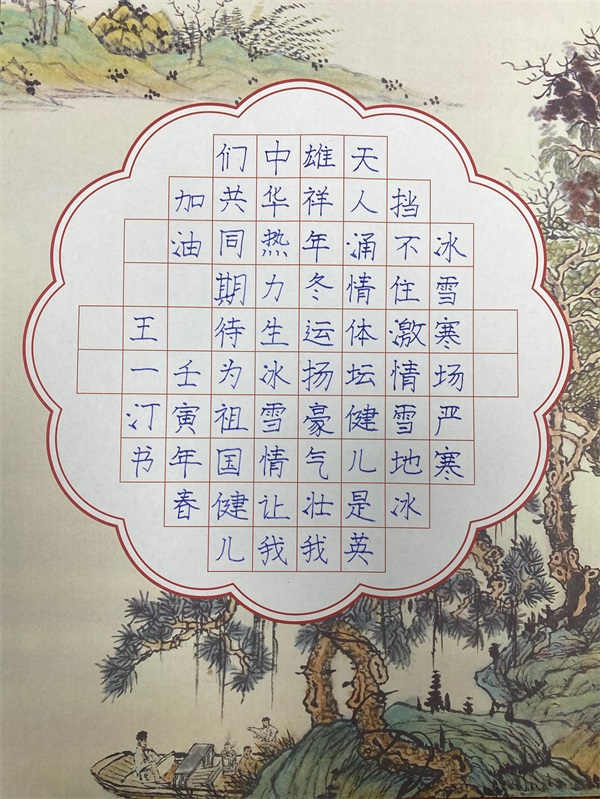 冰雪寒场严寒
挡不住激情雪地冰
天人涌情体坛健儿是英
雄祥年冬运扬豪气壮我
中华热力生冰雪情让我
们共同期待为祖国健儿
加油 壬寅年春
王一汀书